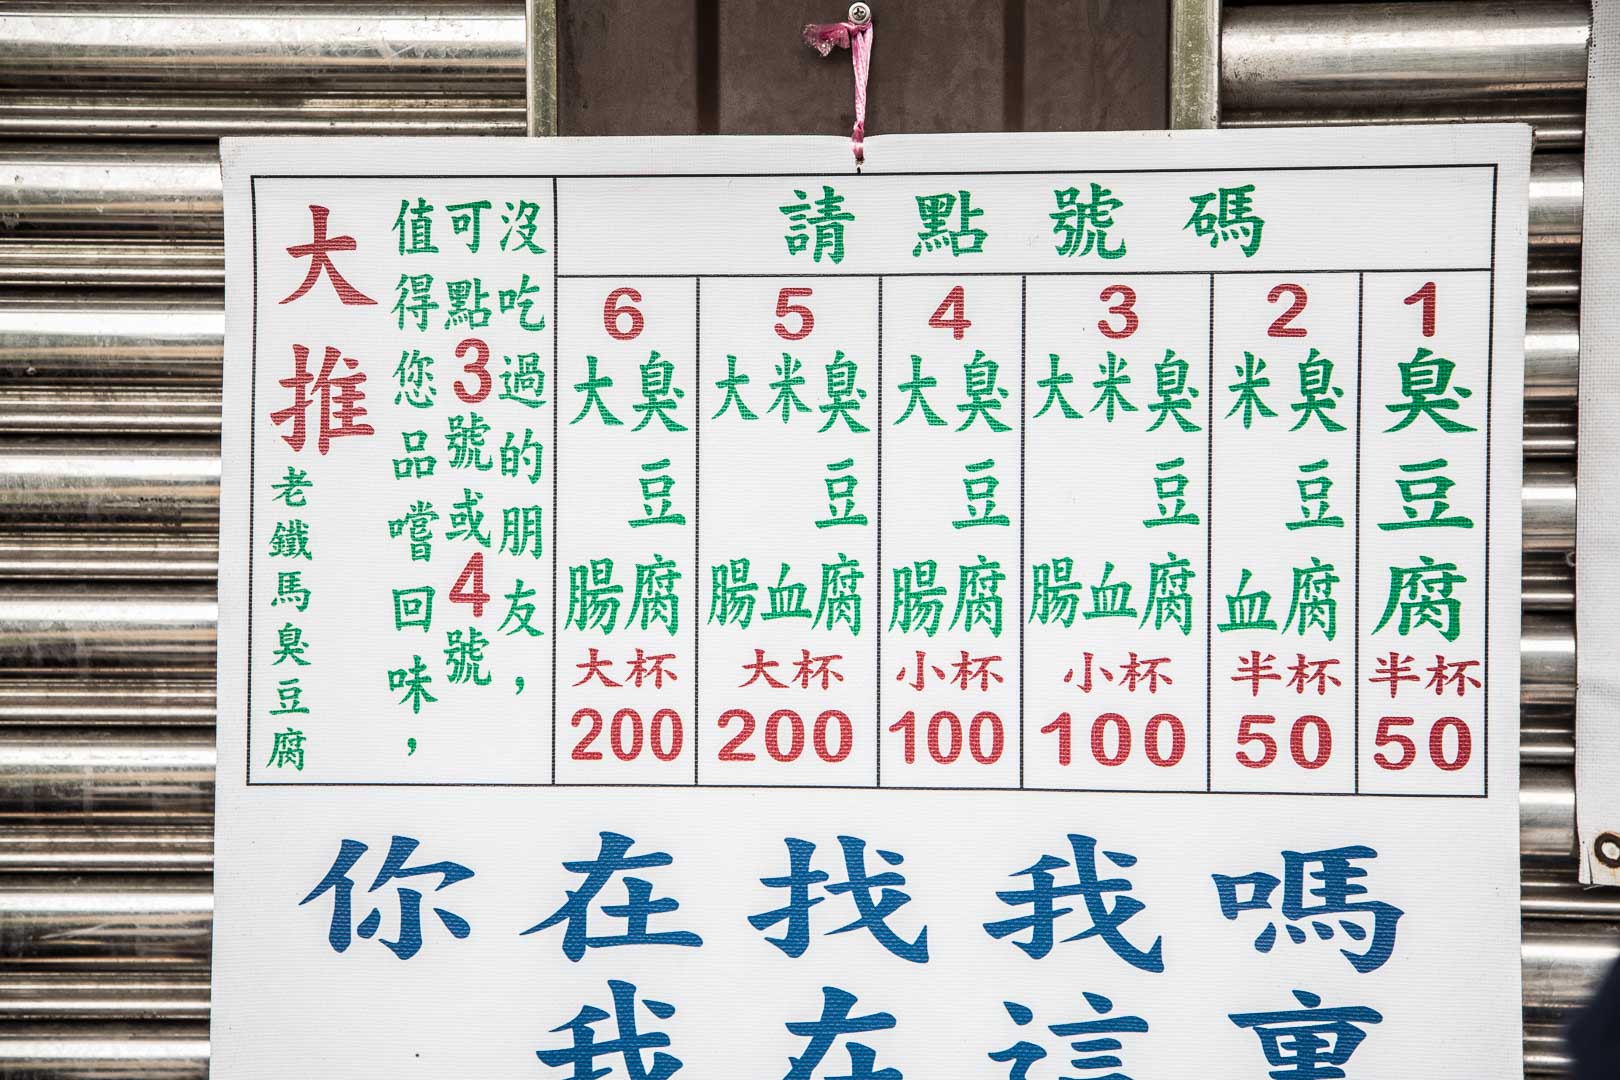 請點號碼
1
臭豆腐
半杯
50
2
臭豆腐
米血
半杯
50
3
臭豆腐
米血
大腸
小杯
100
4
臭豆腐
大腸
小杯
100
5
臭豆腐
米血
大腸
大杯
200
6
臭豆腐
大腸
大杯
200
沒吃過的朋友，
可點3號或4號
值得您品嚐回味，
大推
老鐵馬臭豆腐
你在找我嗎
我在這